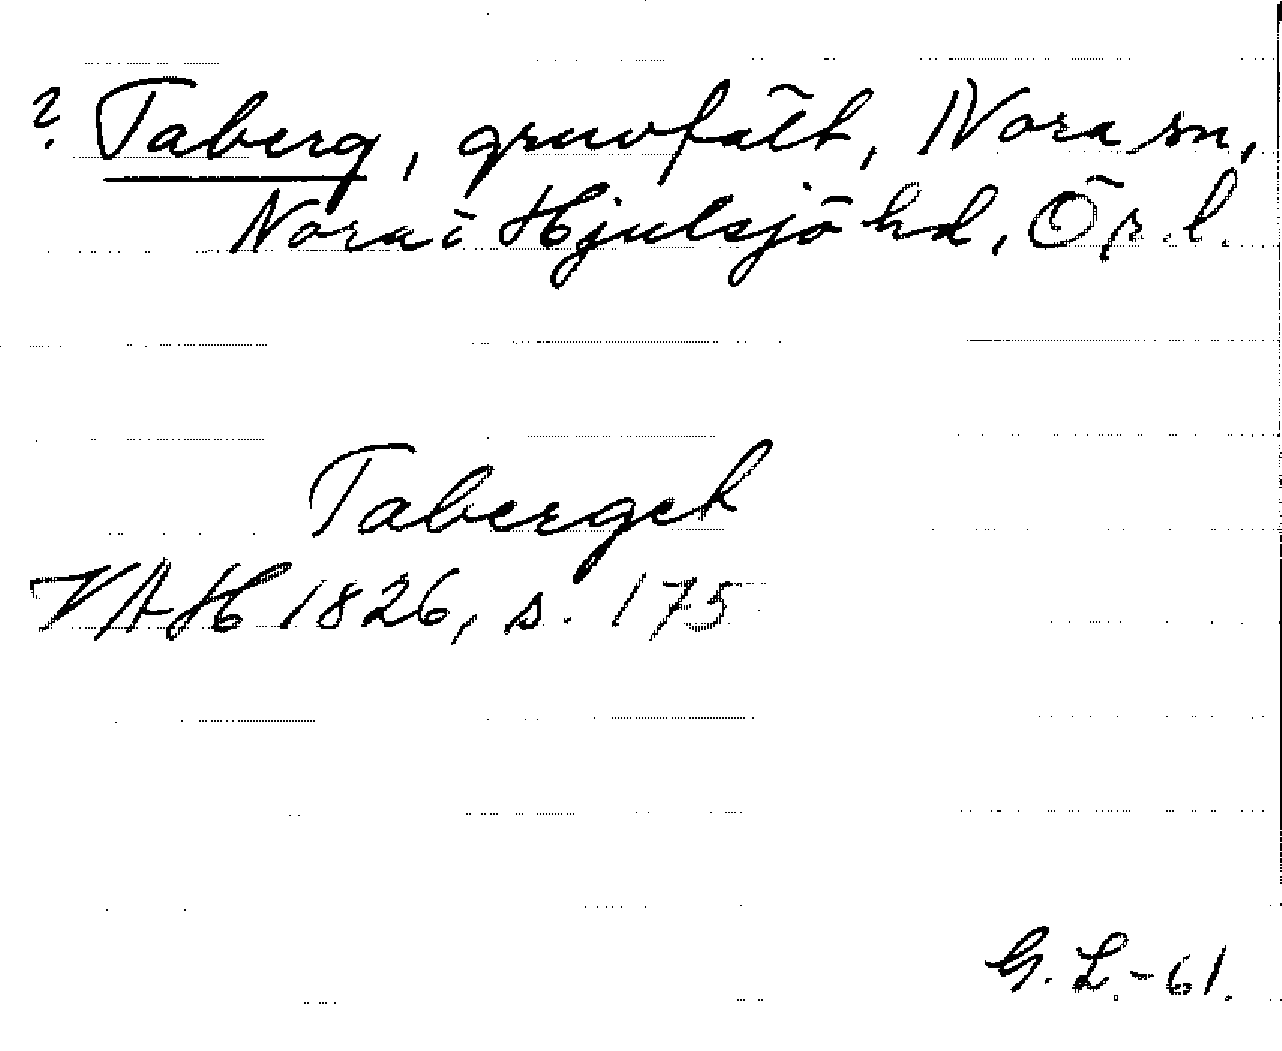 ? Taberg, gruvfält, Nora sn,
Nora i Hjulsjö hd, Ör. l.
Taberget
VAH 1826, s. 175
G. L. -61.